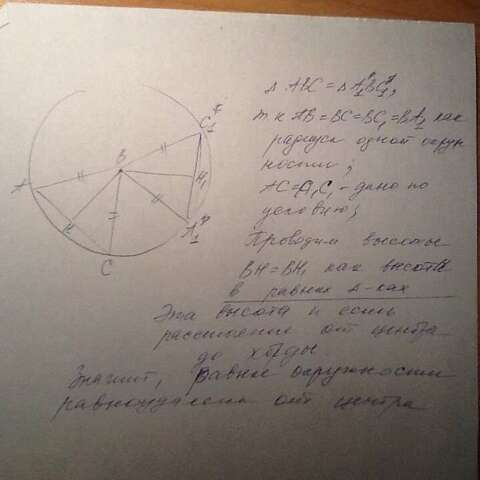 △ ABC = △ A₁BC₁,
т.к AB = BC = BC₁ = BA₁ как
радиусы одной окруж
ности;
AC = A₁C₁ - дано по
условию;
Проводим высоты
BH = BH₁ как высоты
в равных △-ках
Эта высота и есть
расстояние от центра
до хорды.
Значит, равные окружности
равноудалены от центра
C₁
B
A
H₁
H
A₁
C